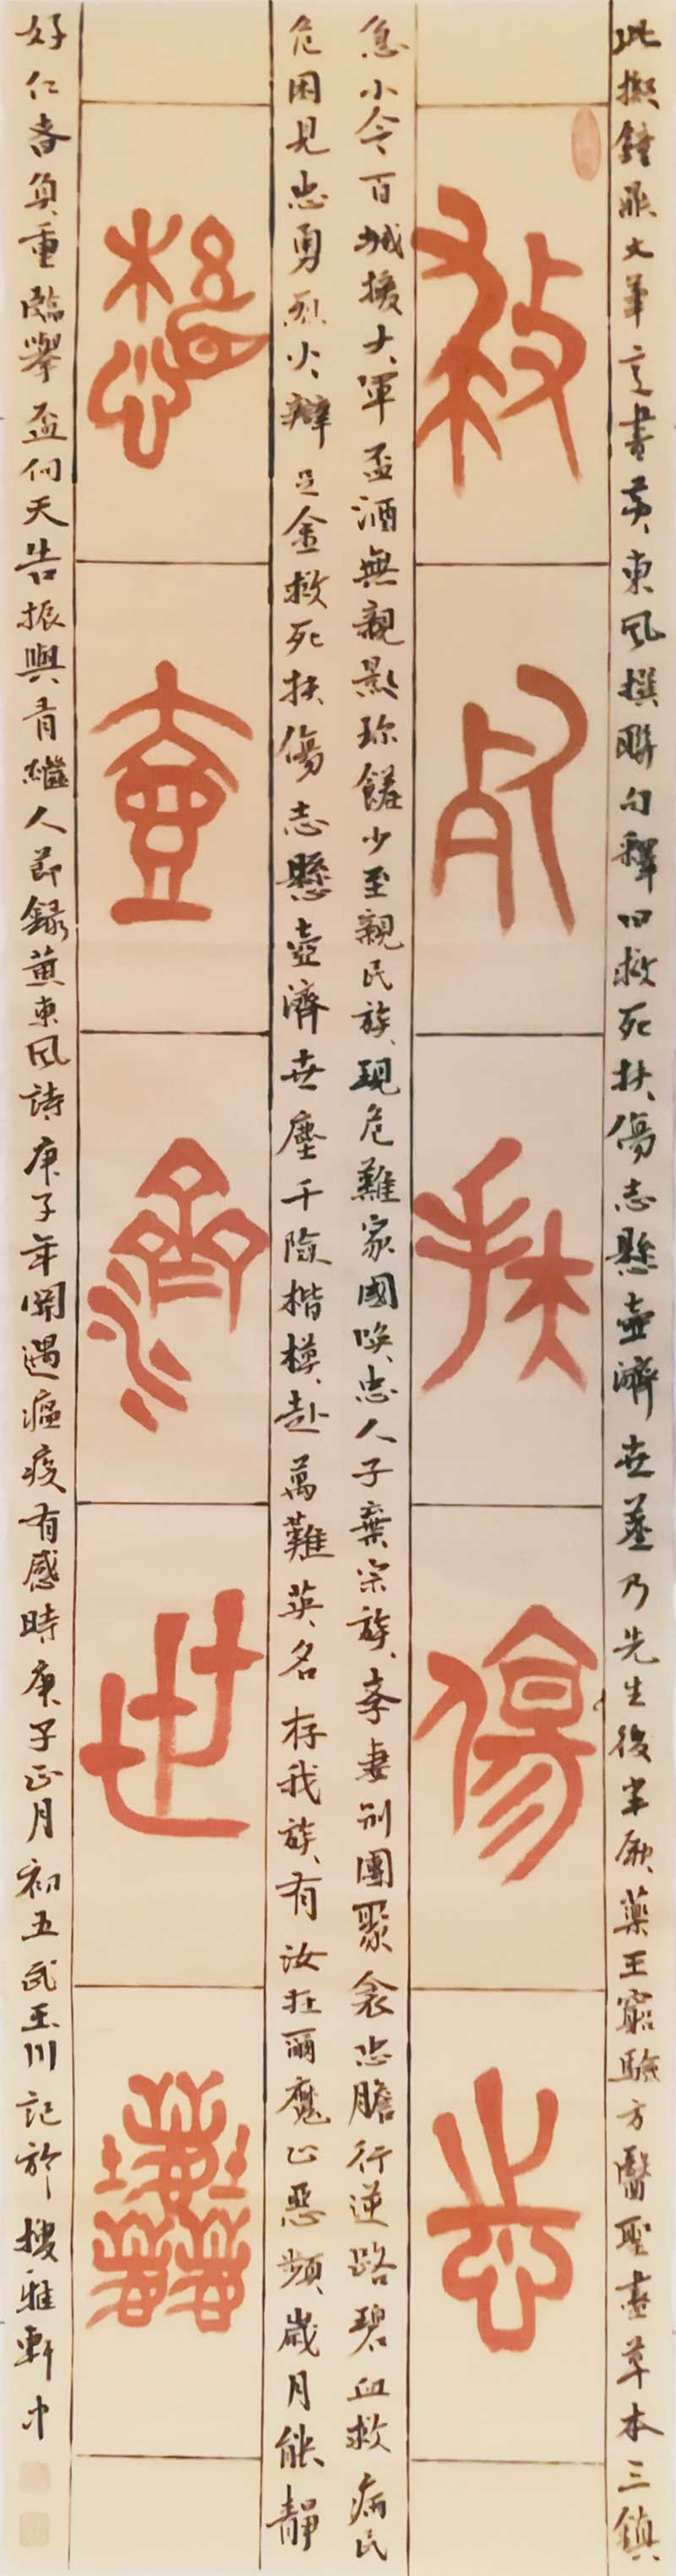 此擬鐘鼎文筆意書黃東風撰聯句釋曰救死扶傷志懸壺濟世塵乃先生後半厥藥王窮驗方醫聖盡草本三鎮
救死扶傷志
急小令百城援大軍盃酒無親影珍饈少至親民族現危難家國喚忠人子棄宗族孝妻別團聚衾忠膽行逆路碧血救病民
危困見忠勇烈火辯足金救死扶傷志懸壺濟世塵千險楷模赴萬難英名存我族有汝在爾魔心惡頻歲月能靜
懸壺濟世塵
好仁者負重臨舉盃何天告振興有繼人節錄黃東風詩庚子年關遇瘟疫有感時庚子正月初五武玉川記於搜雅軒中